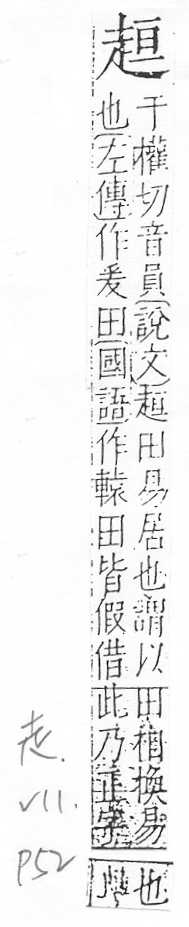 趄
于權切音員說文趄田易居也謂以田相換易也
也左傳作爰田國語作轅田皆假借此乃正字
走.
VII.
P52